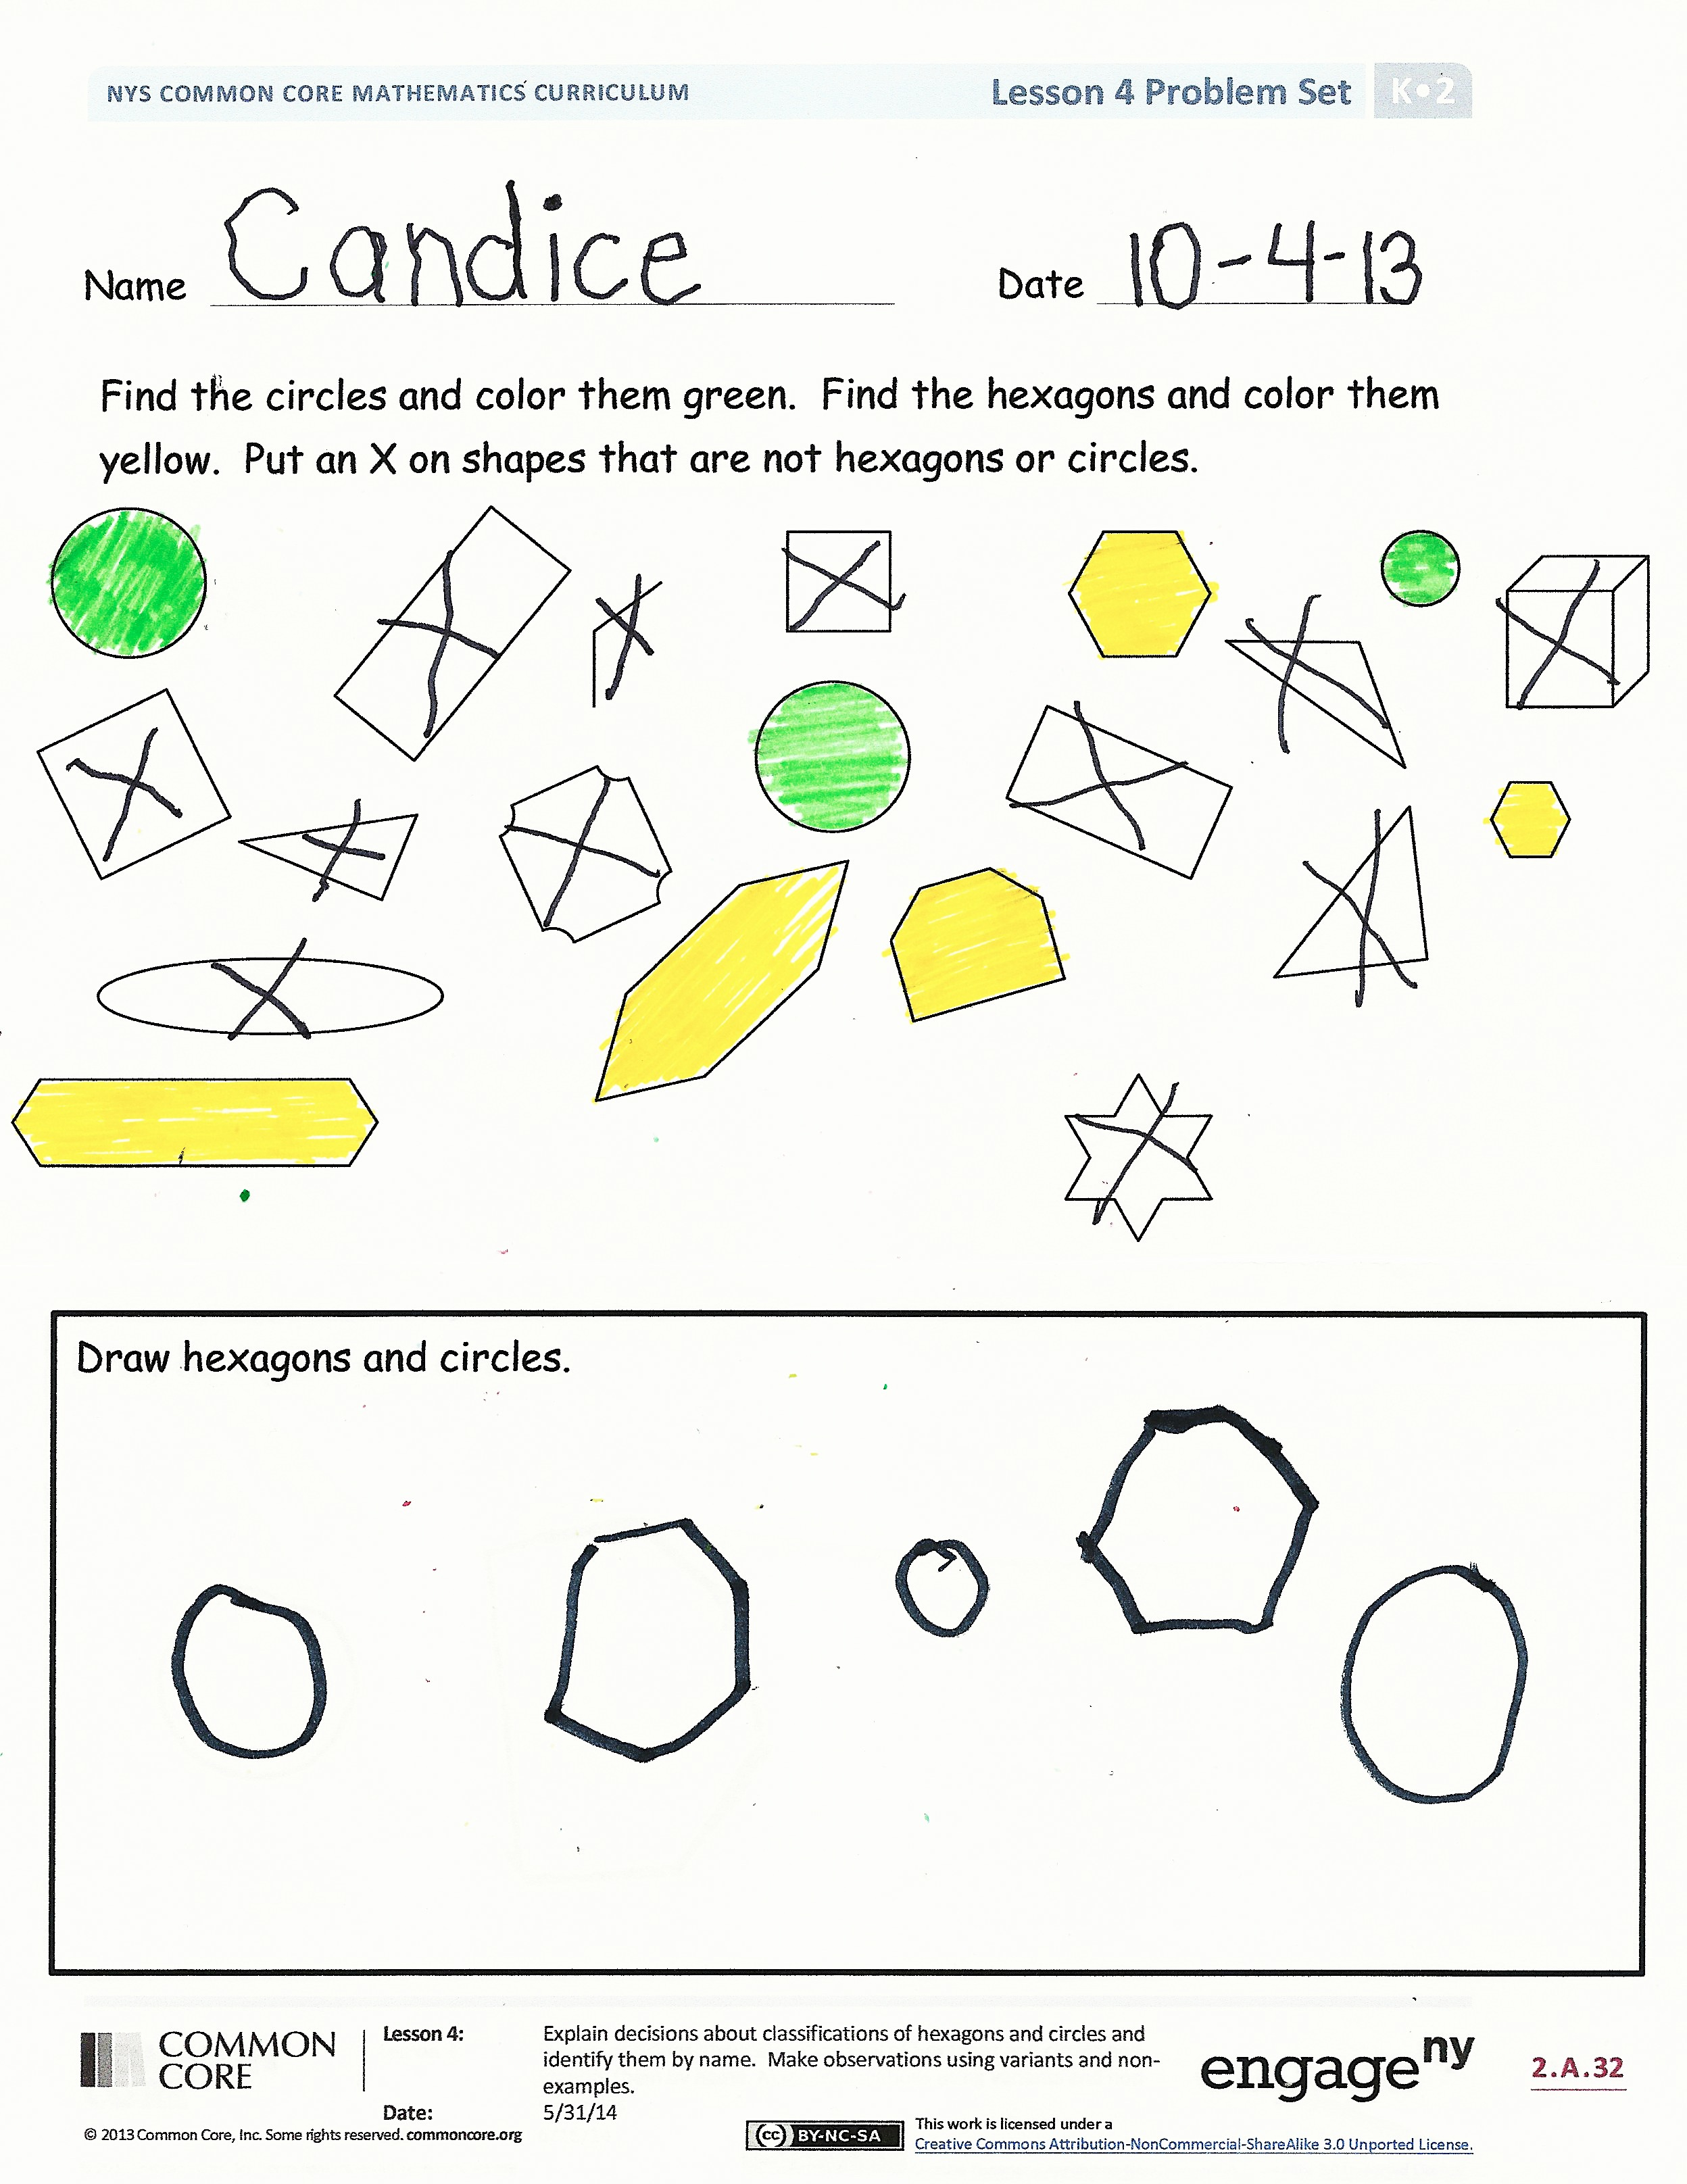 NYS COMMON CORE MATHEMATICS CURRICULUM Lesson 4 Problem Set K•2
Name Candice Date 10-4-13
Find the circles and color them green. Find the hexagons and color them
yellow. Put an X on shapes that are not hexagons or circles.
Draw hexagons and circles.
COMMON
CORE
Lesson 4: Explain decisions about classifications of hexagons and circles and
identify them by name. Make observations using variants and non-
examples.
Date: 5/31/14
engageny
2.A.32
© 2013 Common Core, Inc. Some rights reserved. commoncore.org
cc BY-NC-SA
This work is licensed under a
Creative Commons Attribution-NonCommercial-ShareAlike 3.0 Unported License.